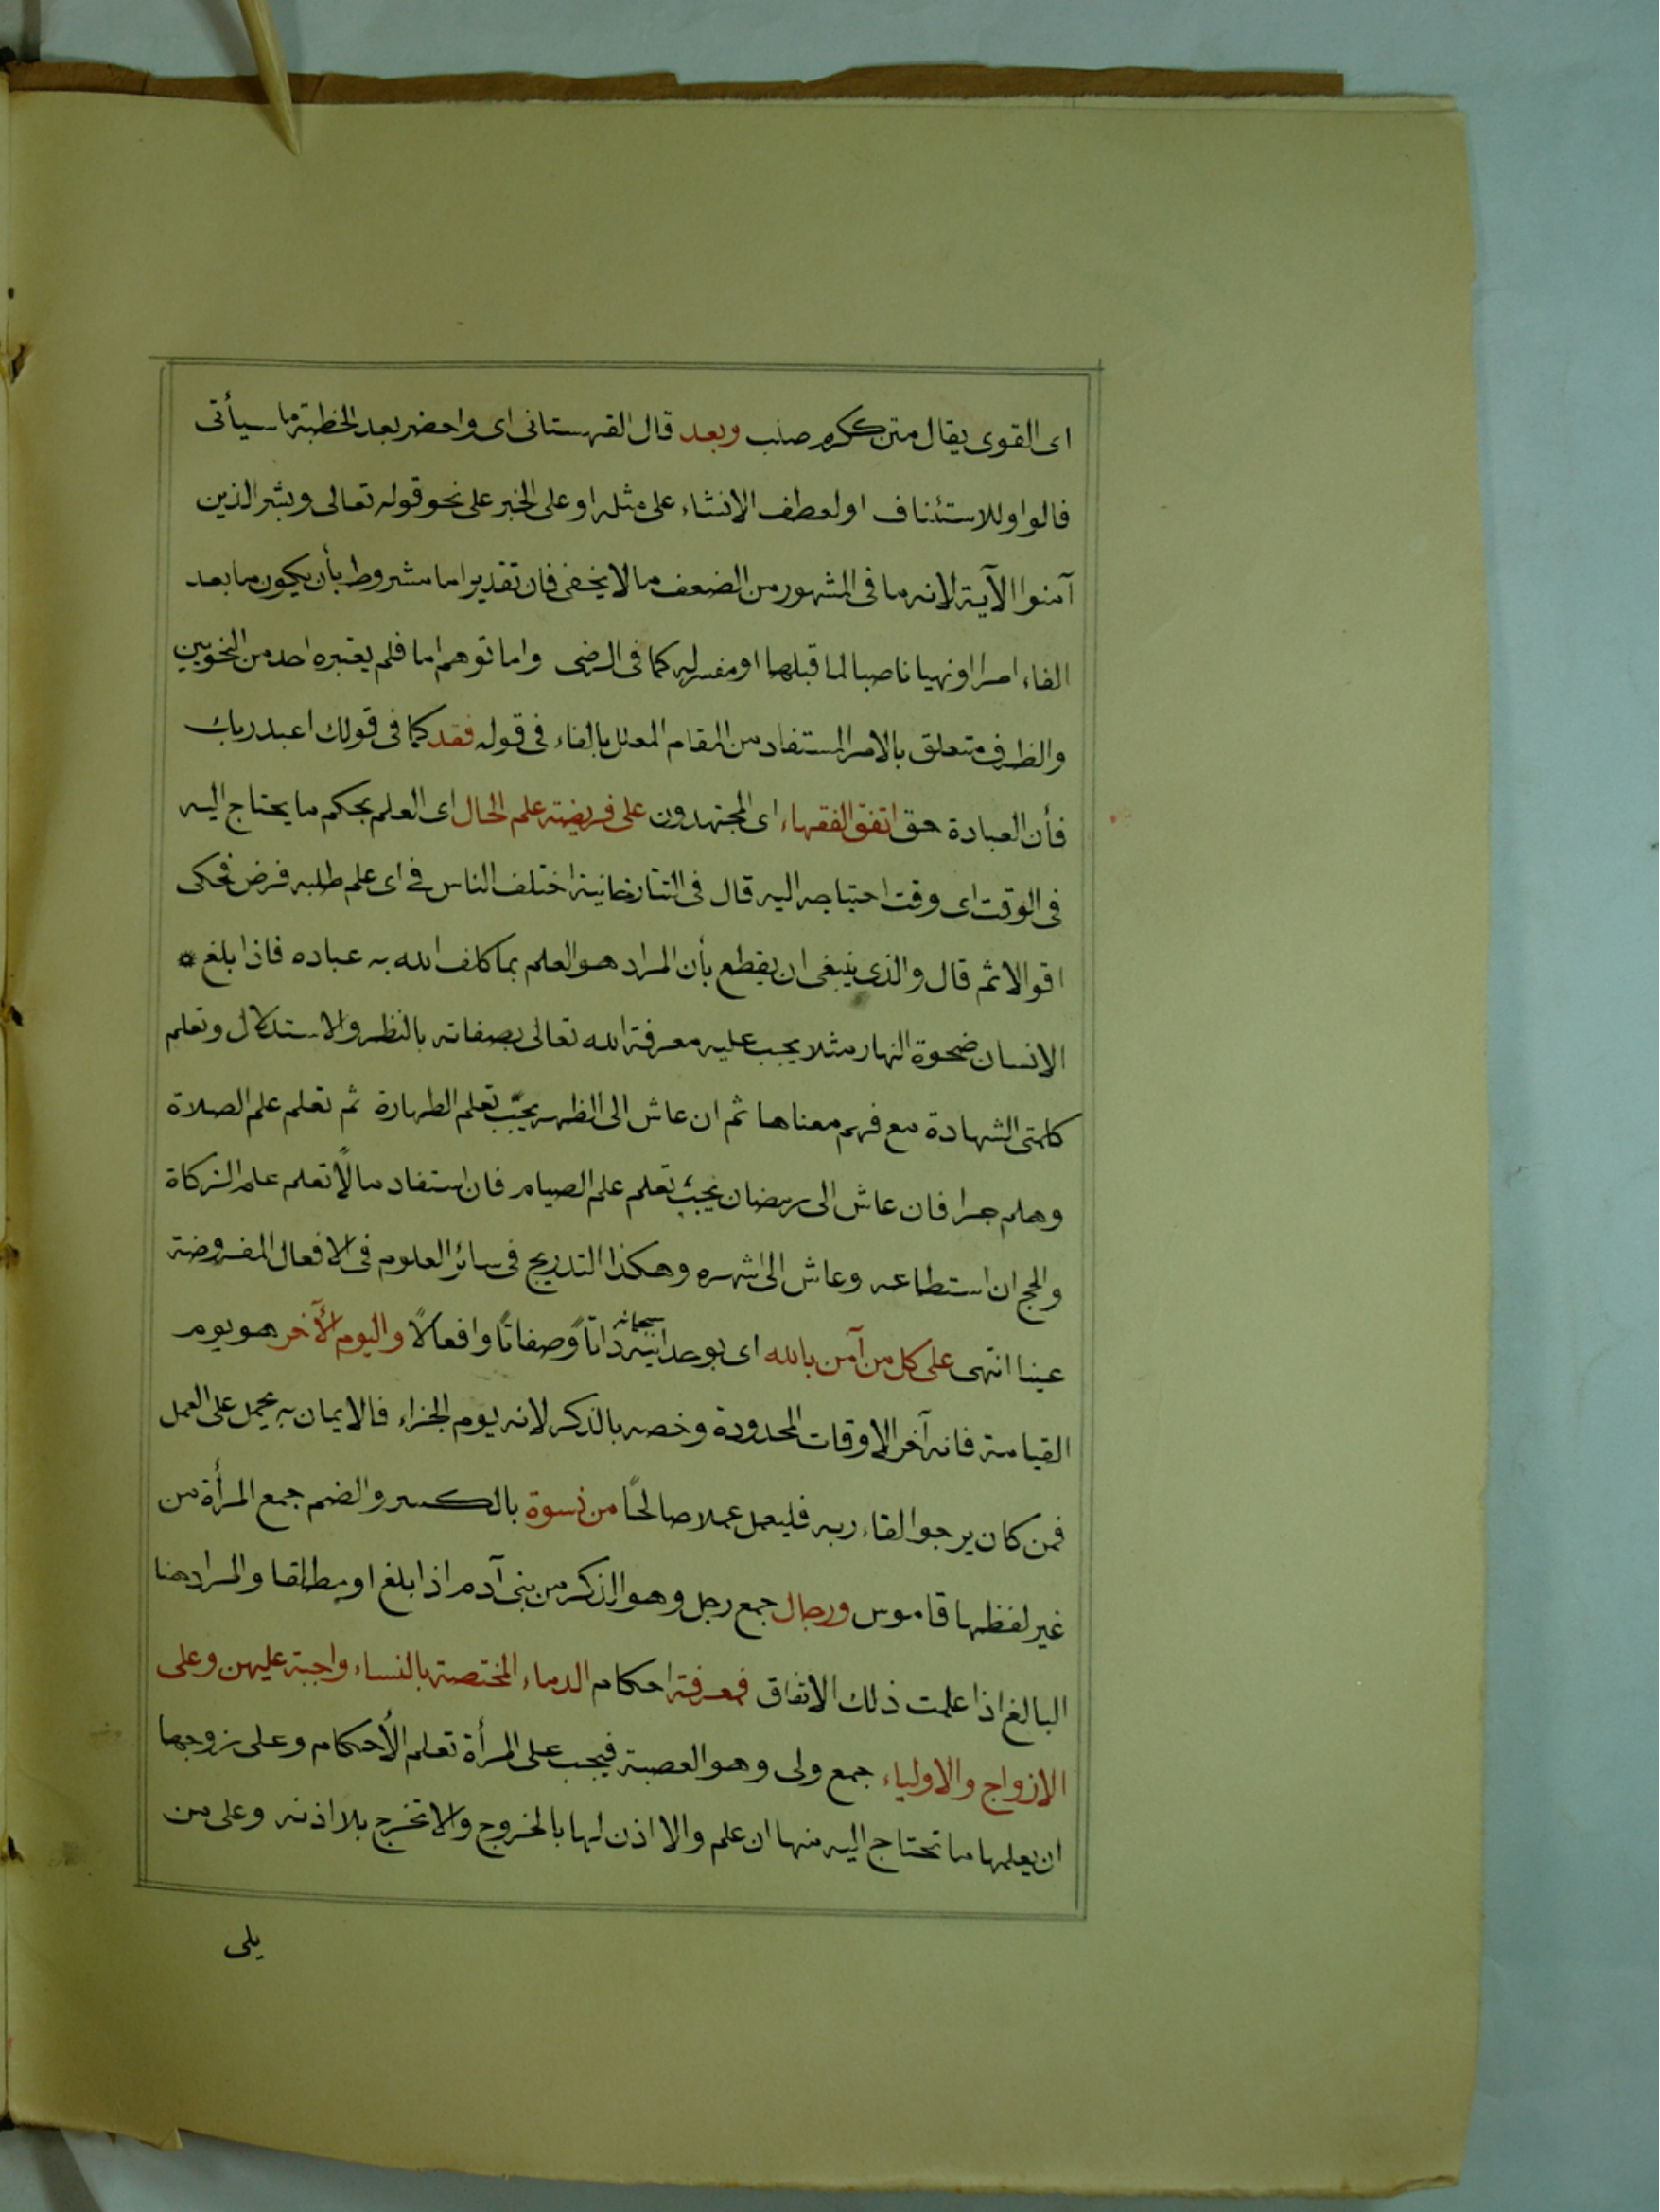 اى القوى يقال متن ككرم صلب وبعد قال القهستانى اى واحضر بعد الخطبة ما سيأتى
فالواو للاستئناف او لعطف الانشاء على مثله او على الخبر على نحو قوله تعالى وبشر الذين
آمنوا الآية لانه ما فى المشهور من الضعف ما لا يخفى فان تقدير اما مشروط بأن يكون ما بعد
الفاء امرا او نهيا ناصبا لما قبلها او مفسر له كما فى الرضى واما توهم اما فلم يعتبره احد من النحويين
والظرف متعلق بالامر المستفاد من المقام المعلل بالفاء فى قوله فقد كما فى قولك اعبد ربك
فأن العبادة حق اتفق الفقهاء اى المجتهدون على فريضة علم الحال اى العلم بحكم ما يحتاج اليه
فى الوقت اى وقت احتياجه اليه قال فى التتارخانية اختلف الناس فى اى علم طلبه فرض فحكى
اقوالا ثم قال والذى ينبغى ان يقطع بأن المراد هو العلم بما كلف الله به عباده فاذا بلغ *
الانسان ضحوة النهار مثلا يجب عليه معرفة الله تعالى بصفاته بالنظر والاستدلال وتعلم
كلمتى الشهادة مع فهم معناها ثم ان عاش الى الظهر يجب تعلم الطهارة ثم تعلم علم الصلاة
وهلم جرا فان عاش الى رمضان يجب تعلم علم الصيام فان استفاد مالًا تعلم علم الزكاة
والحج ان استطاعه وعاش الى اشهره وهكذا التدريج فى سائر العلوم فى الافعال المفروضة
عينا انتهى على كل من آمن بالله اى بوحدانيته سبحانه ذاتًا وصفاتًا وافعالًا واليوم الآخر هو يوم
القيامة فانه آخر الاوقات المحدودة وخصه بالذكر لانه يوم الجزاء فالايمان به يحمل على العمل
فمن كان يرجوا لقاء ربه فليعمل عملا صالحًا من نسوة بالكسر والضم جمع المرأة من
غير لفظها قاموس ورجال جمع رجل وهو الذكر من بنى آدم اذا بلغ او مطلقا والمراد هنا
البالغ اذا علمت ذلك الاتفاق فمعرفة احكام الدماء المختصة بالنساء واجبة عليهن وعلى
الازواج والاولياء جمع ولى وهو العصبة فيجب على المرأة تعلم الأحكام وعلى زوجها
ان يعلمها ما تحتاج اليه منها ان علم والا اذن لها بالخروج والا تخرج بلا اذنه وعلى من
يلى